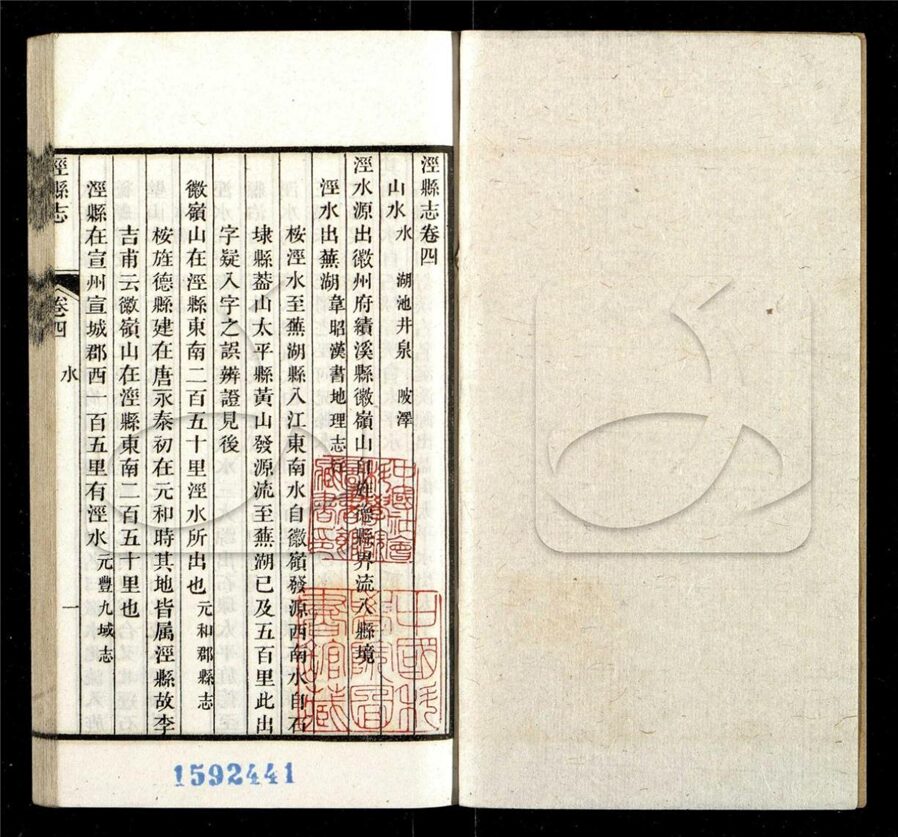 涇縣志卷四
山水 水 湖池井泉 陂澤
涇水源出徽州府績溪縣徽嶺山卽旌德縣界流入縣境
涇水出蕪湖韋昭漢書地理志
桉涇水至蕪湖縣入江東南水自徽嶺發源西南水自石
埭縣葢山太平縣黃山發源流至蕪湖已及五百里此出
字疑入字之誤辨證見後
徽嶺山在涇縣東南二百五十里涇水所出也 元和郡縣志
桉旌德縣建在唐永泰初在元和時其地皆属涇縣故李
吉甫云徽嶺山在涇縣東南二百五十里也
涇縣在宣州宣城郡西一百五里有涇水 元豐九域志
涇縣志 卷四 水 一
中國社會
中國科
1592441